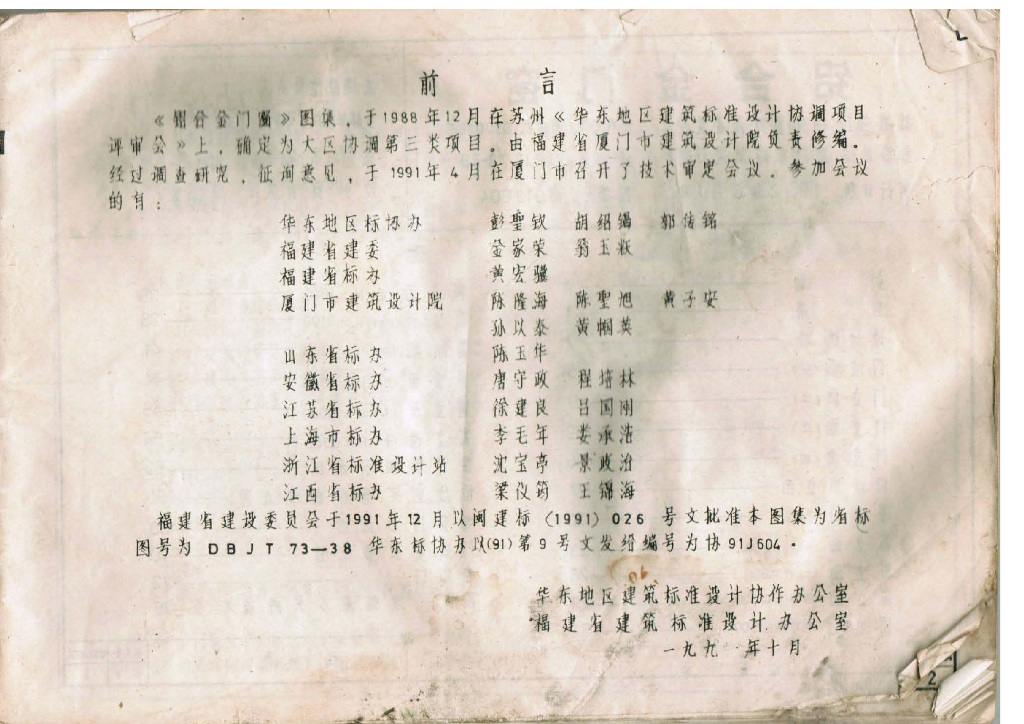 前言
《铝合金门窗》图集，于1988年12月在苏州《华东地区建筑标准设计协调项目
评审会》上，确定为大区协调第三类项目。由福建省厦门市建筑设计院负责修编。
经过调查研究，征询意见，于1991年4月在厦门市召开了技术审定会议。参加会议
的有：
华东地区标协办 彭聖钦 胡绍 郭传铭
福建省建委 金家荣 翁玉
福建省标办 黄宏疆
厦门市建筑设计院 陈隆海 陈聖旭 黄子安
孙以泰 黄帼英
山东省标办 陈玉华
安徽省标办 唐守政 程培林
江苏省标办 徐建良 吕国刚
上海市标办 李毛年 娄承浩
浙江省标准设计站 沈宝亭 景政治
江西省标办 梁仪筠 王锦海
福建省建设委员会于1991年12月以闽建标（1991）026号文批准本图集为省标
图号为DBJT 73—38 华东标协办以(91)第9号文发给编号为协91J604。
华东地区建筑标准设计协作办公室
福建省建筑标准设计办公室
一九九一年十月
2